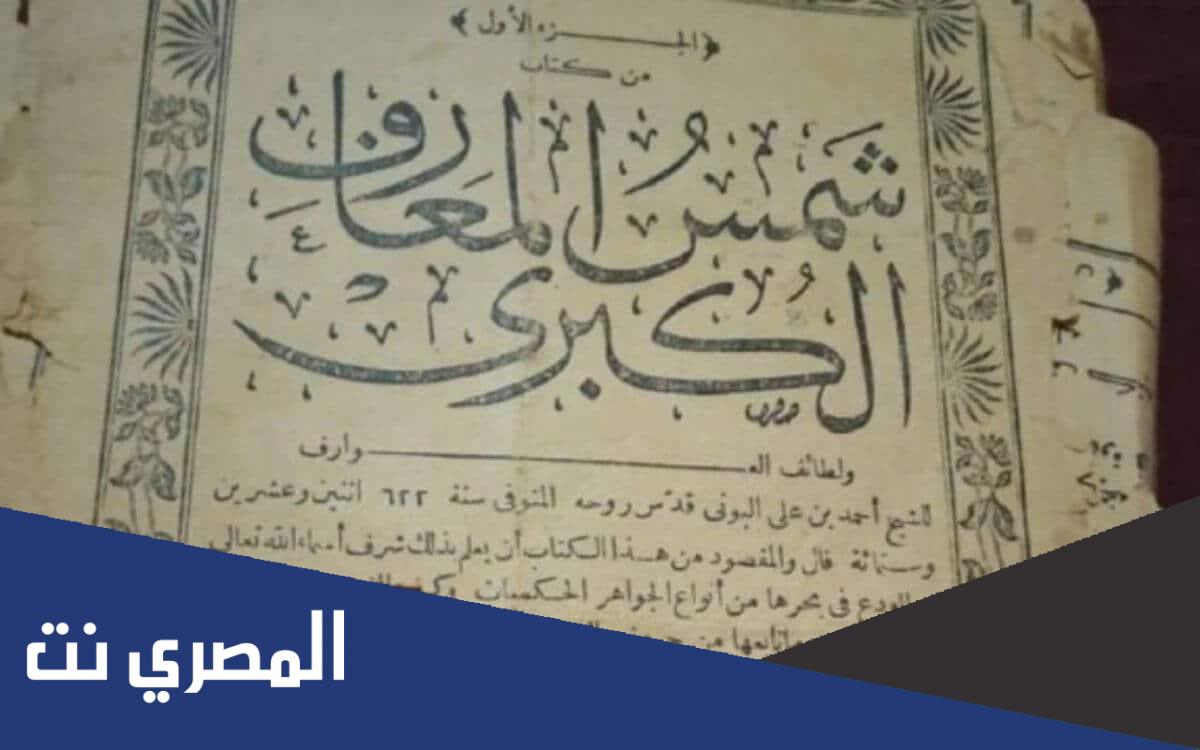 ﴿الجزء الأول﴾
من كتاب
شمس المعارف
الكبرى
ولطائف العوارف
للشيخ أحمد بن على البونى قدّس روحه المتوفى سنة ٦٢٢ اثنين وعشرين
وستمائة قال والمقصود من هذا الكتاب أن يعلم بذلك شرف أسماء الله تعالى
فى بحرها من أنواع الجواهر الحكميات
المصري نت